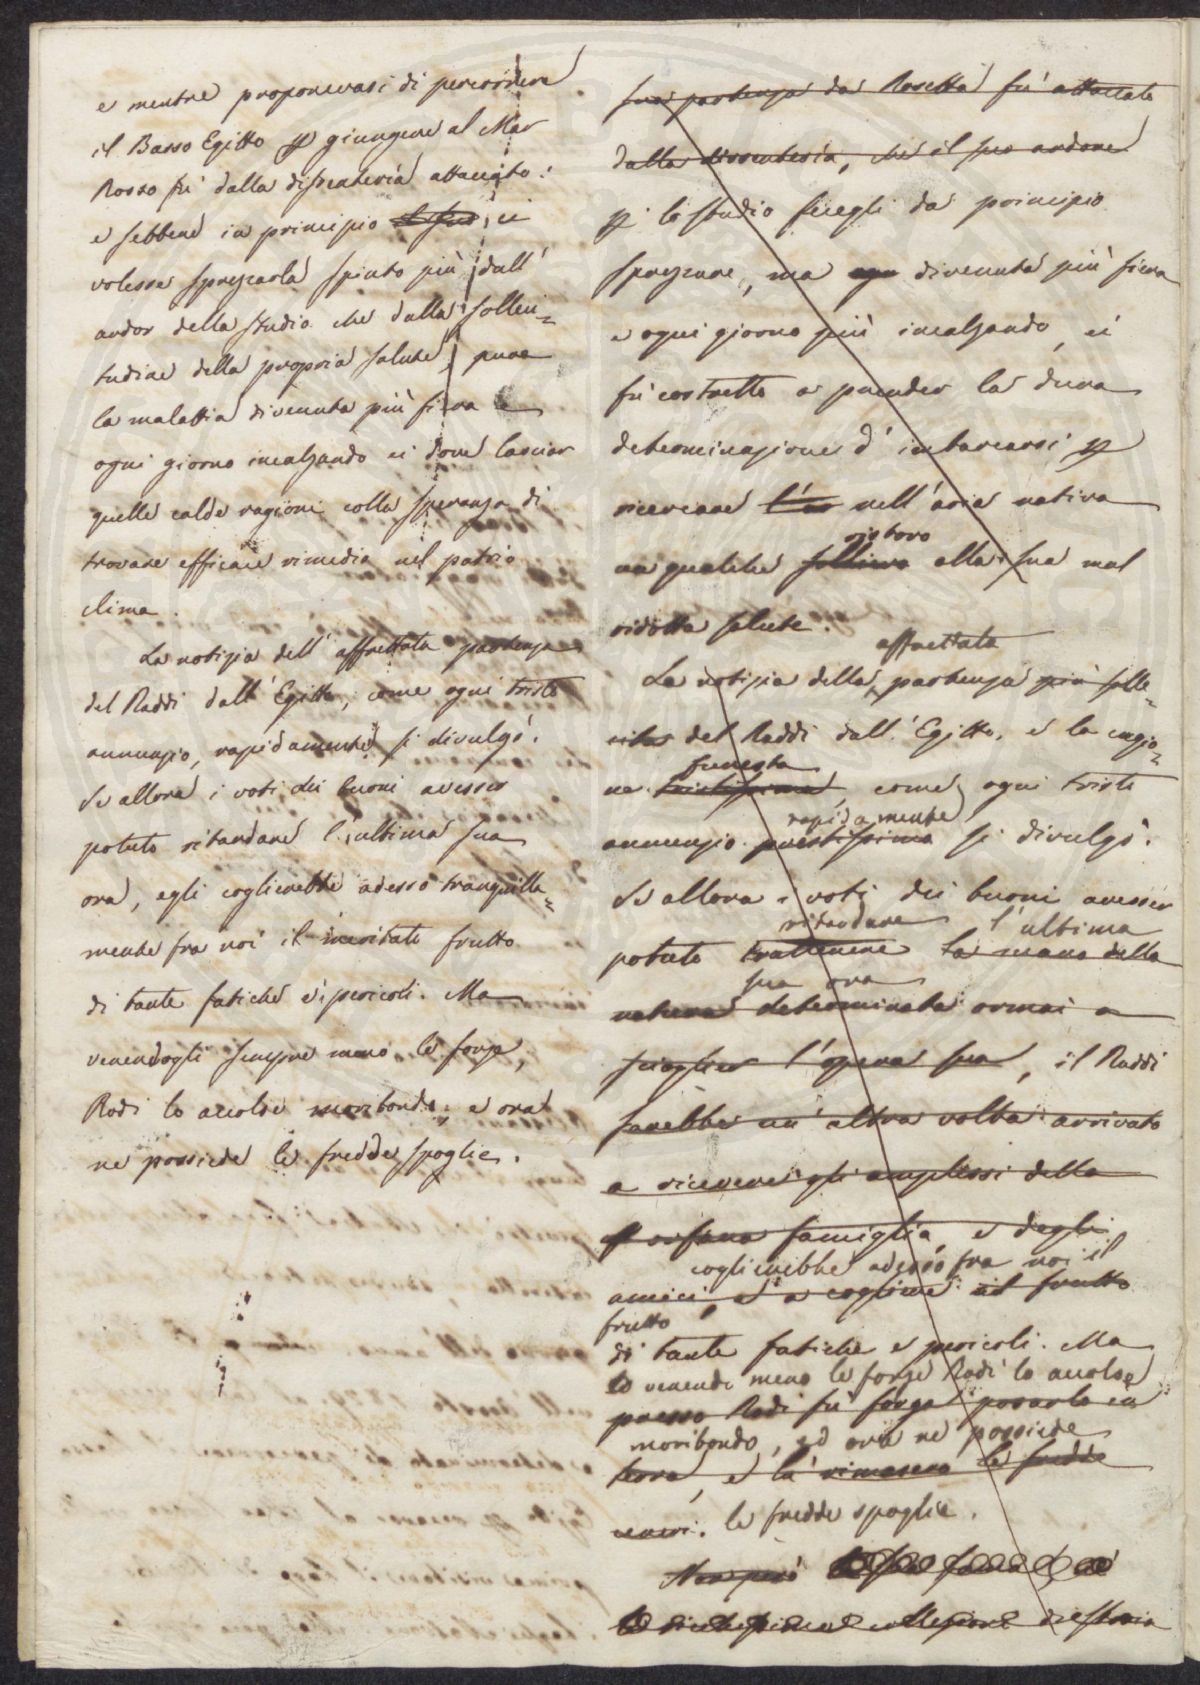 e mentre proponevasi di percorrere
il Basso Egitto p giungere al Mar
Rosso fù dalla dissenteria attaccato:
e sebbene in principio ei
volesse sprezzarla spinto più dall'
ardor dello studio che dalla solleci=
tudine della propria salute, pure
la malattia divenuta più fiera e
ogni giorno incalzando ei dovè lasciar
quelle calde ragioni colla speranza di
trovare efficace rimedio nel patrio
clima.
La notizia dell'affrettata partenza
del Raddi dall'Egitto, come ogni triste
annunzio, rapidamente si divulgò.
Se allora i voti dei buoni avesser
potuto ritardare l'ultima sua
ora, egli coglierebbe adesso tranquilla=
mente fra noi il meritato frutto
di tante fatiche e pericoli. Ma
venendogli sempre meno le forze,
Rodi lo accolse moribondo; e ora
ne possiede le fredde spoglie.
sua partenza da Rosetta fù attaccato
dalla dissenteria, che il suo ardore
p lo studio feregli da principio
sprezzare, ma divenuta più fiera
e ogni giorno più incalzando, ei
fù costretto a prender la dura
determinazione d'imbarcarsi p
ricercare l'ar nell'aria nativa
ristoro
un qualche sollievo alla sua mal
ridotta salute.
affrettata
La notizia della partenza più solle=
cita del Raddi dall'Egitto, e la cagio=
funesta
ne tristissima, come ogni triste
rapidamente
annunzio prestissimo si divulgò.
Se allora i voti dei buoni avesser
ritardare l'ultima
potuto trattenere la mano della
sua ora
natura determinata ormai a
scioglier l'opera sua, il Raddi
sarebbe un'altra volta arrivato
a ricevere gli amplessi della
orfana famiglia, e degli
coglierebbe adesso fra noi il
amici, e a cogliere il frutto
frutto
di tante fatiche e pericoli. Ma
venendo meno le forze Rodi lo accolse
presso Rodi fù forza posarlo in
moribondo, ed ora ne possiede
terra, e là rimasero le fredde
ceneri. le fredde spoglie.
Non però la sua fama
collezione di storia